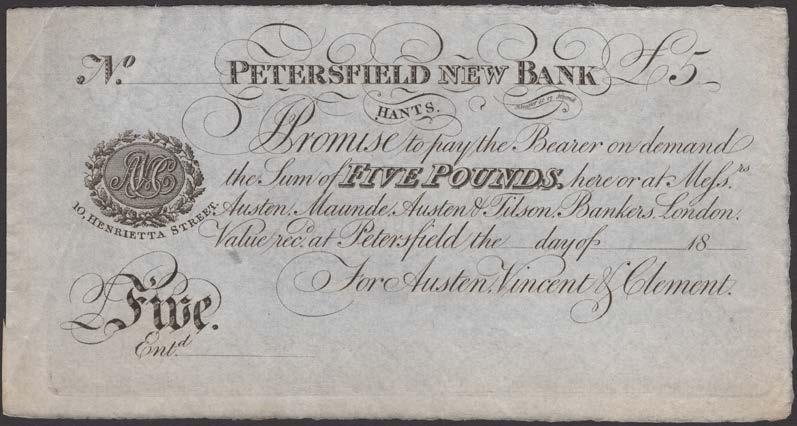 No. PETERSFIELD NEW BANK £5
HANTS.
I Promise to pay the Bearer on demand
the Sum of FIVE POUNDS. here or at Mess.rs
Austen, Maunde, Austen & Tilson, Bankers, London.
Value rec.d at Petersfield the day of 18
For Austen, Vincent & Clement.
AV&C
10, HENRIETTA STREET.
£Five.
Ent.d